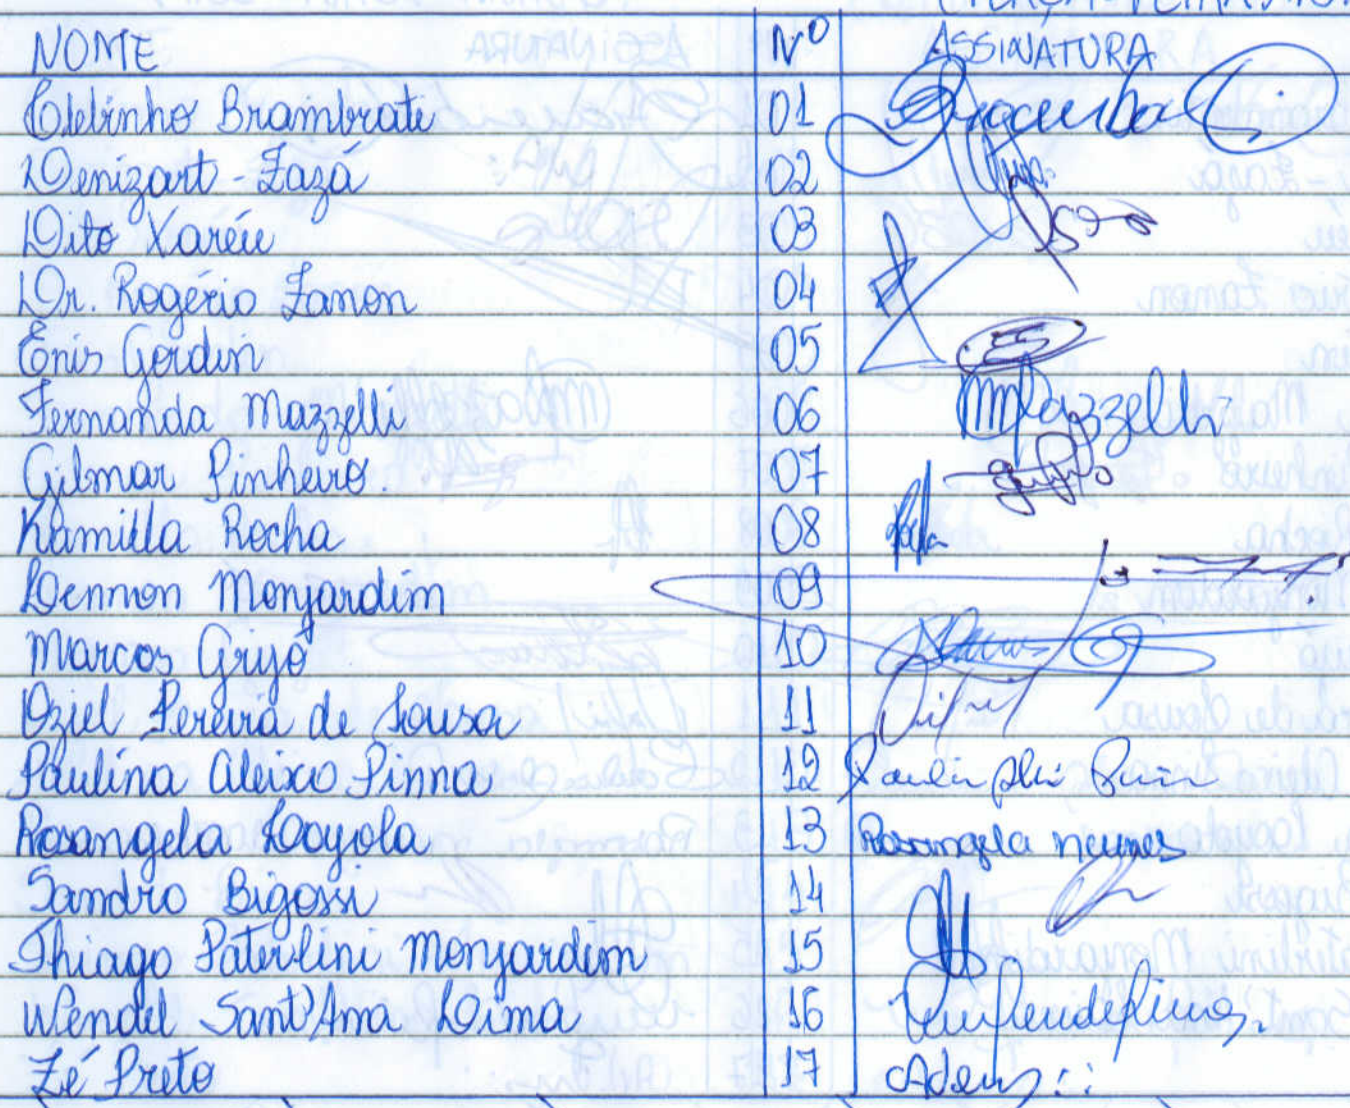 NOME Nº ASSINATURA
Clebinho Brambrati 01
Denizart - Zazá 02
Dito Xaréu 03
Dr. Rogério Zanon 04
Enis Gordin 05
Fernanda Mazzelli 06 Mazzelli
Gilmar Pinheiro. 07
Kamilla Rocha 08
Lennon Monjardim 09
Marcos Grijó 10
Oziel Pereira de Sousa 11
Paulina Aleixo Pinna 12
Rosangela Loyola 13 Rosangela neunes
Sandro Bigossi 14
Thiago Paterlini Monjardim 15
Wendel Sant'Ana Lima 16
Zé Preto 17